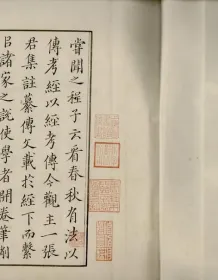 嘗聞之程子云看春秋有法以
傳考經以經考傳今觀主一張
君集註纂傳文載於經下而繫
吕諸家之說使學者開卷筆削